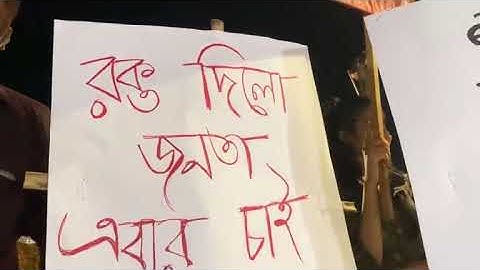 রক্ত দিলো
জনতা
এবার চাই